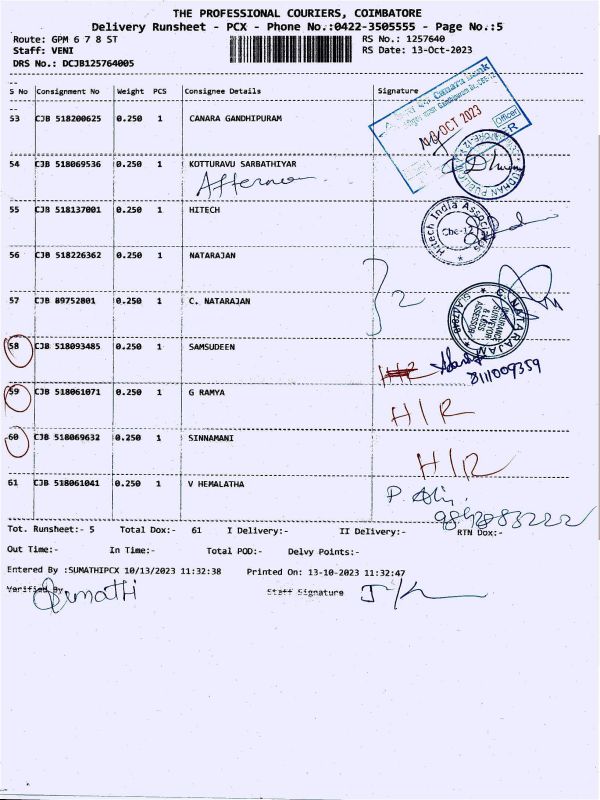 THE PROFESSIONAL COURIERS, COIMBATORE
Delivery Runsheet - PCX - Phone No.:0422-3505555 - Page No.:5
Route: GPM 6 7 8 ST RS No.: 1257640
Staff: VENI RS Date: 13-Oct-2023
DRS No.: DCJB125764005
S No Consignment No Weight PCS Consignee Details Signature
Canara Bank
53 CJB 518200625 0.250 1 CANARA GANDHIPURAM
OCT 2023
Officer
54 CJB 518069536 0.250 1 KOTTURAVU SARBATHIYAR
55 CJB 518137001 0.250 1 HITECH
Hitech India Associates
Cbe-12
56 CJB 518226362 0.250 1 NATARAJAN
57 CJB 89752801 0.250 1 C. NATARAJAN
} 2
C. NATARAJAN
INSURANCE
SURVEYOR
& LOSS
ASSESSOR
58 CJB 518093485 0.250 1 SAMSUDEEN
8111009359
59 CJB 518061071 0.250 1 G RAMYA
H/R
60 CJB 518069632 0.250 1 SINNAMANI
H/R
61 CJB 518061041 0.250 1 V HEMALATHA
Tot. Runsheet:- 5 Total Dox:- 61 I Delivery:- II Delivery:- RTN Dox:-
Out Time:- In Time:- Total POD:- Delvy Points:-
Entered By :SUMATHIPCX 10/13/2023 11:32:38 Printed On: 13-10-2023 11:32:47
Verified By
Staff Signature